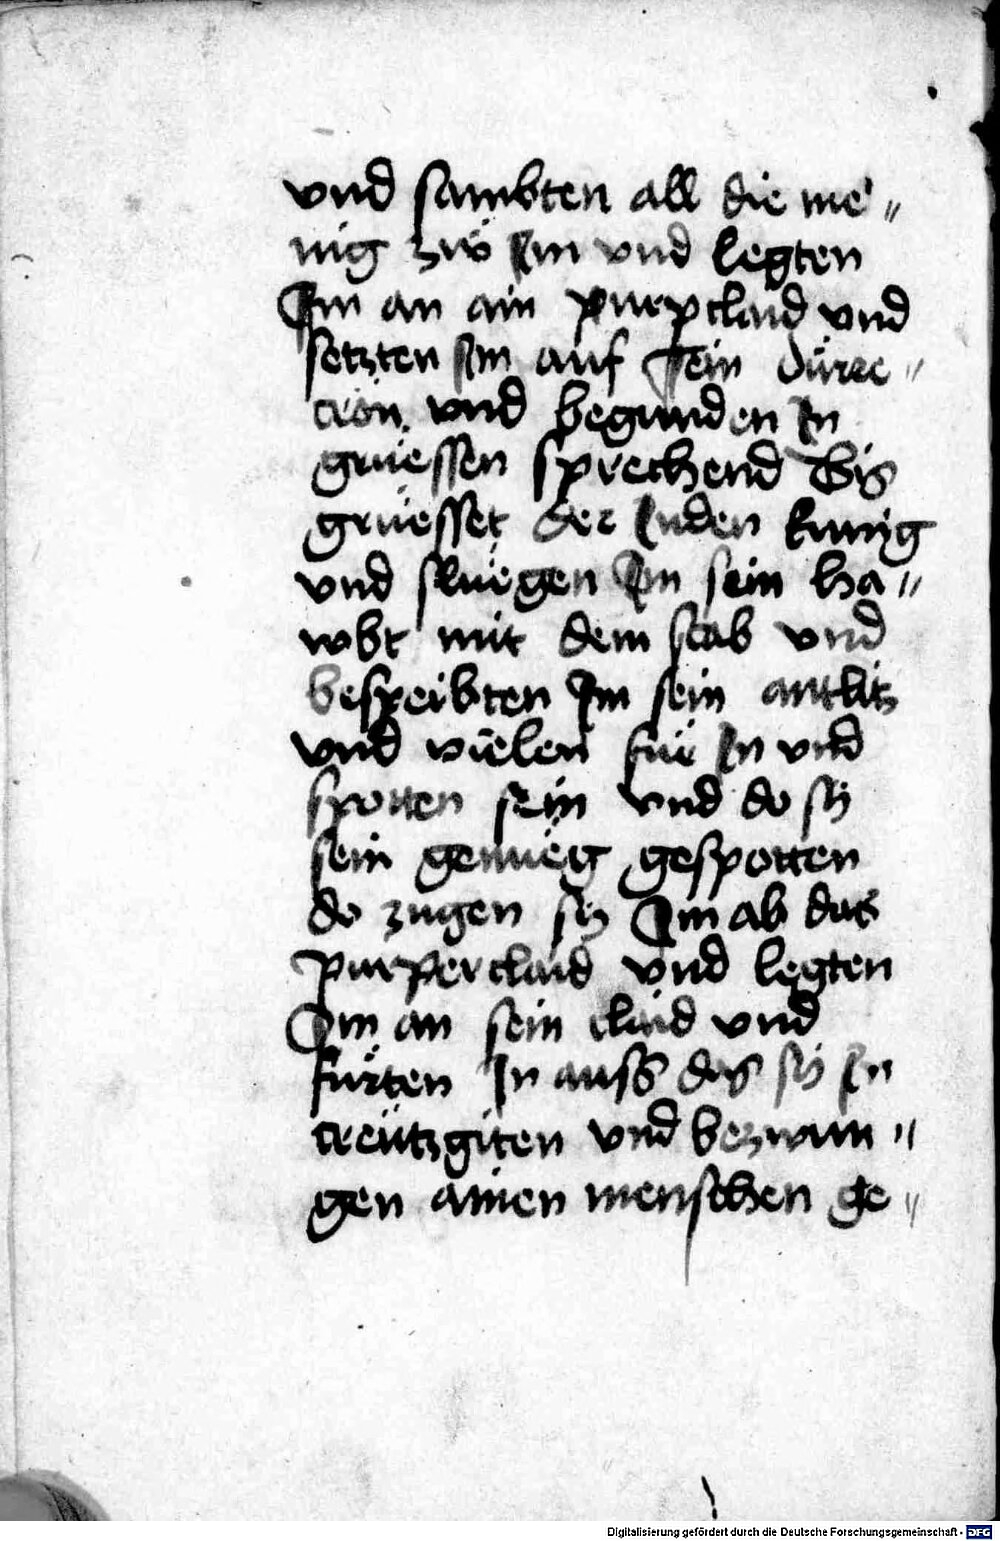 vnd sambten all die me„
nig zwo Im vnd legten
Im an ain purpclaid vnd
setzten Im auf sein dürec„
cron vnd begunden In
gruessen sprechend Bis
gruesset der Juden kunig
vnd sluegen Im sein ha„
wbt mit dem stab vnd
bespeibten Im sein antlitz
vnd vielen fue In vnd
spotten sein vnd do sy
sein genueg gespotten
do zugen sy Im ab das
purperclaid vnd legten
Im an sein claid vnd
fürten In auss das sy In
creützgiten vnd bezwun„
gen ainen menschen ge„
Digitalisierung gefördert durch die Deutsche Forschungsgemeinschaft - DFG